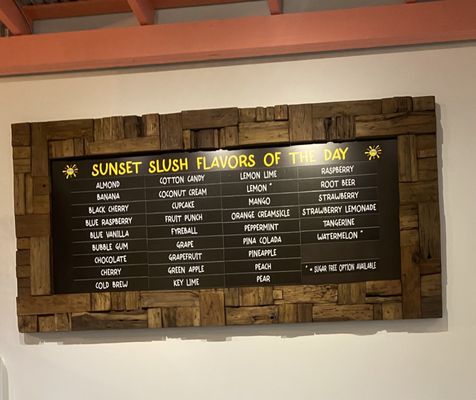 SUNSET SLUSH FLAVORS OF THE DAY
ALMOND
BANANA
BLACK CHERRY
BLUE RASPBERRY
BLUE VANILLA
BUBBLE GUM
CHOCOLATE
CHERRY
COLD BREW
COTTON CANDY
COCONUT CREAM
CUPCAKE
FRUIT PUNCH
FYREBALL
GRAPE
GRAPEFRUIT
GREEN APPLE
KEY LIME
LEMON LIME
LEMON *
MANGO
ORANGE CREAMSICLE
PEPPERMINT
PINA COLADA
PINEAPPLE
PEACH
PEAR
RASPBERRY
ROOT BEER
STRAWBERRY
STRAWBERRY LEMONADE
TANGERINE
WATERMELON *
* SUGAR FREE OPTION AVAILABLE